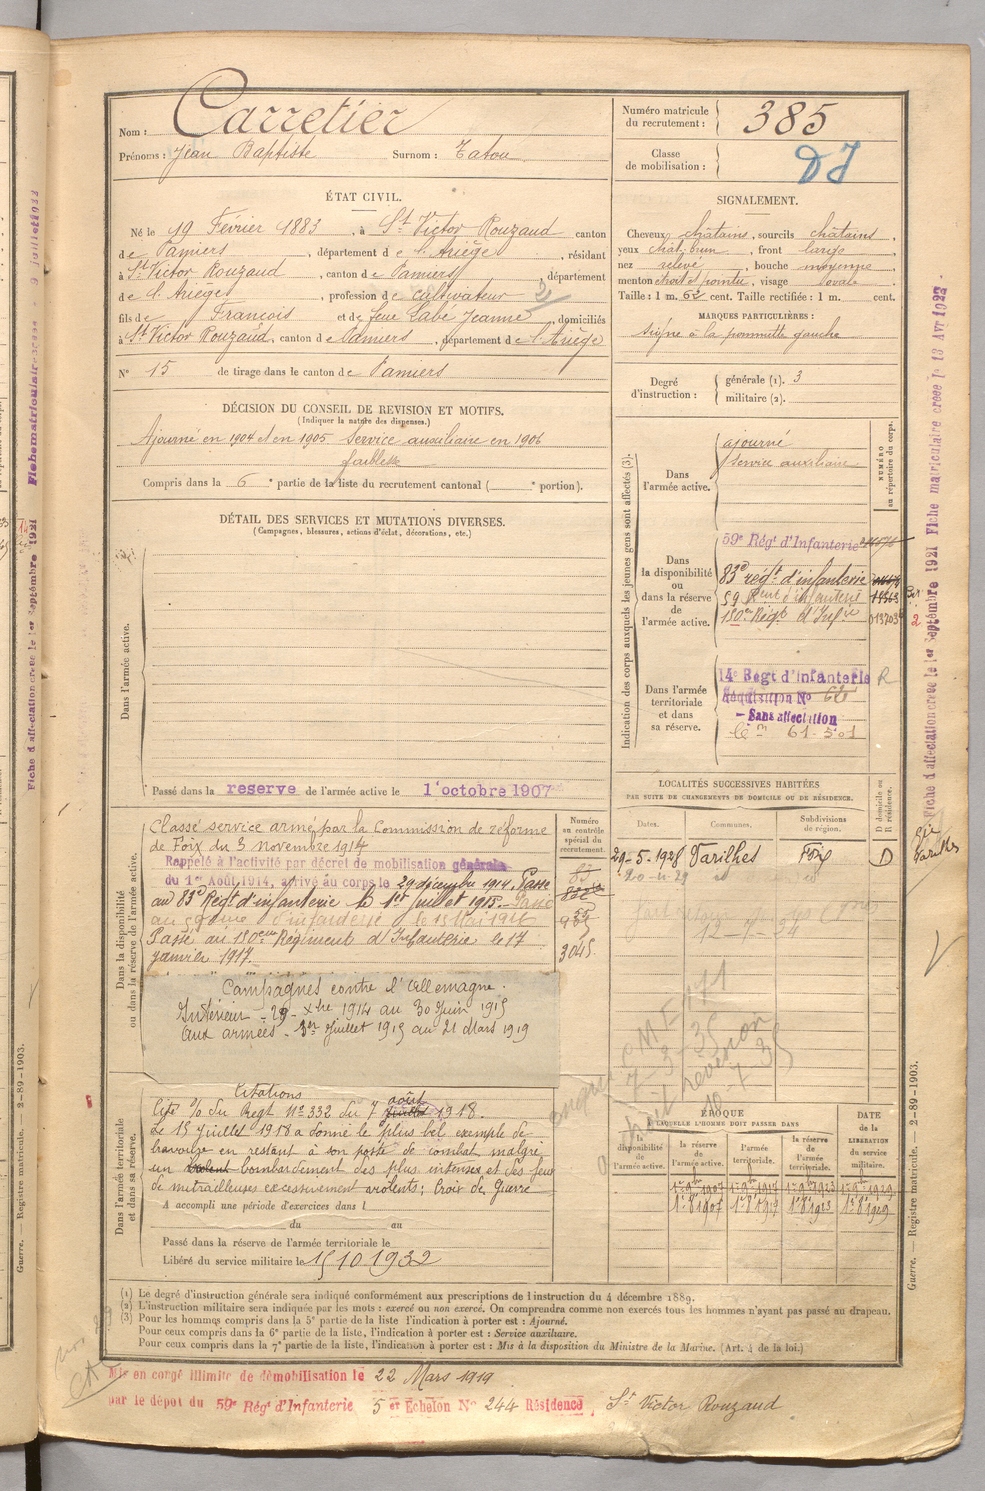 Nom : Carretier
Prénoms : Jean Baptiste Surnom : Tatou
Numéro matricule du recrutement : 385
Classe de mobilisation :
ÉTAT CIVIL.
Né le 19 Février 1883, à St Victor Rouzaud canton
de Pamiers, département de l'Ariège, résidant
à St Victor Rouzaud, canton de Pamiers, département
de l'Ariège, profession de cultivateur 2
fils de François et de feue Labé Jeanne, domiciliés
à St Victor Rouzaud, canton de Pamiers, département de l'Ariège
N° 15 de tirage dans le canton de Pamiers
SIGNALEMENT.
Cheveux châtains, sourcils châtains,
yeux chât. brun, front large,
nez relevé, bouche moyenne
menton pointu, visage ovale
Taille : 1 m. 62 cent. Taille rectifiée : 1 m. cent.
MARQUES PARTICULIÈRES :
signe à la pommette gauche
Degré d'instruction : générale (1). 3
militaire (2).
DÉCISION DU CONSEIL DE REVISION ET MOTIFS.
(Indiquer la nature des dispenses.)
Ajourné en 1904 et en 1905 Service auxiliaire en 1906
faiblesse
Compris dans la 6e partie de la liste du recrutement cantonal ( e portion).
DÉTAIL DES SERVICES ET MUTATIONS DIVERSES.
(Campagnes, blessures, actions d'éclat, décorations, etc.)
Dans l'armée active.
Passé dans la reserve de l'armée active le 1 octobre 1907
Indication des corps auxquels les jeunes gens sont affectés (3).
NUMÉRO au répertoire du corps.
Dans l'armée active.
ajourné
service auxiliaire
Dans la disponibilité ou dans la réserve de l'armée active.
59e Rég' d'Infanterie
83e régt d'infanterie
59 d'infanterie
180e Régt d'Infie
Dans l'armée territoriale et dans sa réserve.
14e Regt d'Infanterie R
Sans affectation
Dans la disponibilité ou dans la réserve de l'armée active.
Classé service armé par la Commission de réforme
de Foix du 3 novembre 1914
Rappelé à l'activité par décret de mobilisation générale
du 1er Août 1914, arrivé au corps le 29 décembre 1914. Passé
au 83e Régt d'infanterie le 1er juillet 1915. Passé
au 59ème d'infanterie le 15 Mai 1916
Passé au 180eme Régiment d'Infanterie le 17
janvier 1917.
Numéro au contrôle spécial du recrutement.
3045
Campagnes contre l'Allemagne.
Intérieur - 29 - Xbre 1914 au 30 Juin 1915
Aux armées - 1er Juillet 1915 au 21 Mars 1919
LOCALITÉS SUCCESSIVES HABITÉES
PAR SUITE DE CHANGEMENTS DE DOMICILE OU DE RÉSIDENCE.
Dates. Communes. Subdivisions de région. D domicile ou R résidence.
29-5-1928 Varilhes Foix D
20-11-29
12-7-34
7-3-35
Dans l'armée territoriale et dans sa réserve.
Citations
Cité % du Regt N° 332 du 7 juillet août 1918.
Le 15 juillet 1918 a donné le plus bel exemple de
bravoure en restant à son poste de combat malgré
un violent bombardement des plus intenses et des feux
de mitrailleuses excessivement violents; Croix de Guerre
A accompli une période d'exercices dans l
du au
Passé dans la réserve de l'armée territoriale le
Libéré du service militaire le 15 10 1932
ÉPOQUE
À LAQUELLE L'HOMME DOIT PASSER DANS
la disponibilité de l'armée active. la réserve de l'armée active. l'armée territoriale. la réserve de l'armée territoriale. DATE de la LIBÉRATION du service militaire.
(1) Le degré d'instruction générale sera indiqué conformément aux prescriptions de l'instruction du 4 décembre 1889.
(2) L'instruction militaire sera indiquée par les mots : exercé ou non exercé. On comprendra comme non exercés tous les hommes n'ayant pas passé au drapeau.
(3) Pour les hommes compris dans la 5e partie de la liste l'indication à porter est : Ajourné.
Pour ceux compris dans la 6e partie de la liste, l'indication à porter est : Service auxiliaire.
Pour ceux compris dans la 7e partie de la liste, l'indication à porter est : Mis à la disposition du Ministre de la Marine. (Art. 4 de la loi.)
Mis en congé illimité de démobilisation le 22 Mars 1919
par le dépot du 59e Rég' d'Infanterie 5 er Echelon N° 244 Résidence St Victor Rouzaud
Fiche d'affectation creee le 1er Septembre 1921 Fiche matriculaire creee le 13 Avr 1922
Guerre. — Registre matricule. — 2-89-1903.
Fiche d'affectation creee le 1er Septembre 1921
Guerre. — Registre matricule. — 2-89-1903.